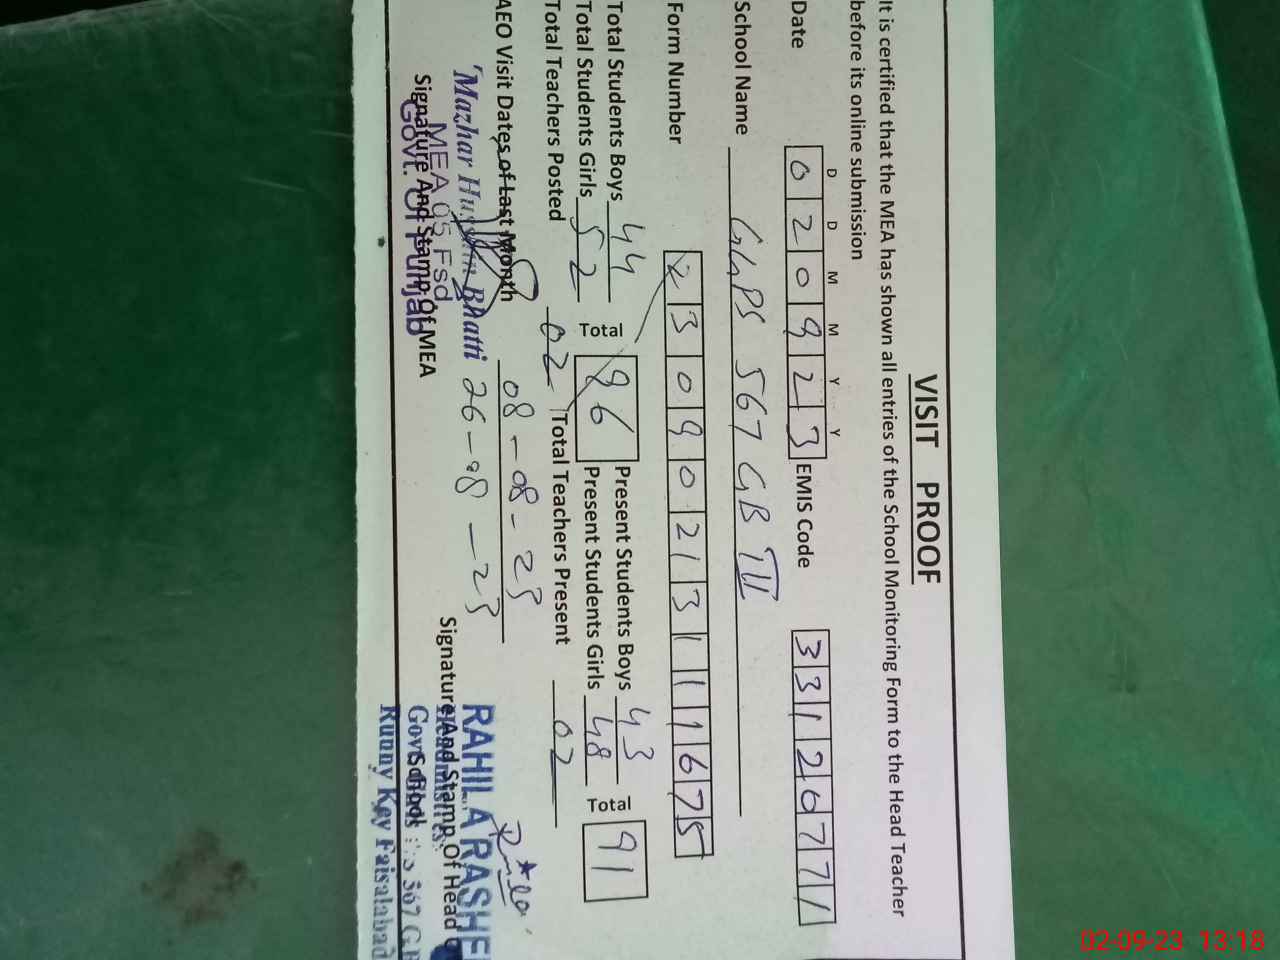 VISIT PROOF
It is certified that the MEA has shown all entries of the School Monitoring Form to the Head Teacher
before its online submission
D D M M Y Y
Date 0 2 0 9 2 3 EMIS Code 3 3 1 2 0 7 7 1
School Name GGPS 567 GB III
Form Number 2 3 0 9 0 2 1 3 1 1 1 6 7 5
Total Students Boys 44 Total 96 Present Students Boys 43 Total 91
Total Students Girls 52 Present Students Girls 48
Total Teachers Posted 02 Total Teachers Present 02
AEO Visit Dates of Last Month 08-08-23
26-08-23
Mazhar Hussain Bhatti
MEA 95 Fsd
Govt. Of Punjab
Signature And Stamp Of MEA
RAHILA RASHE
Signature And Stamp Of Head
Govt 567 G.B
School
Faisalabad
02-09-23 13:18